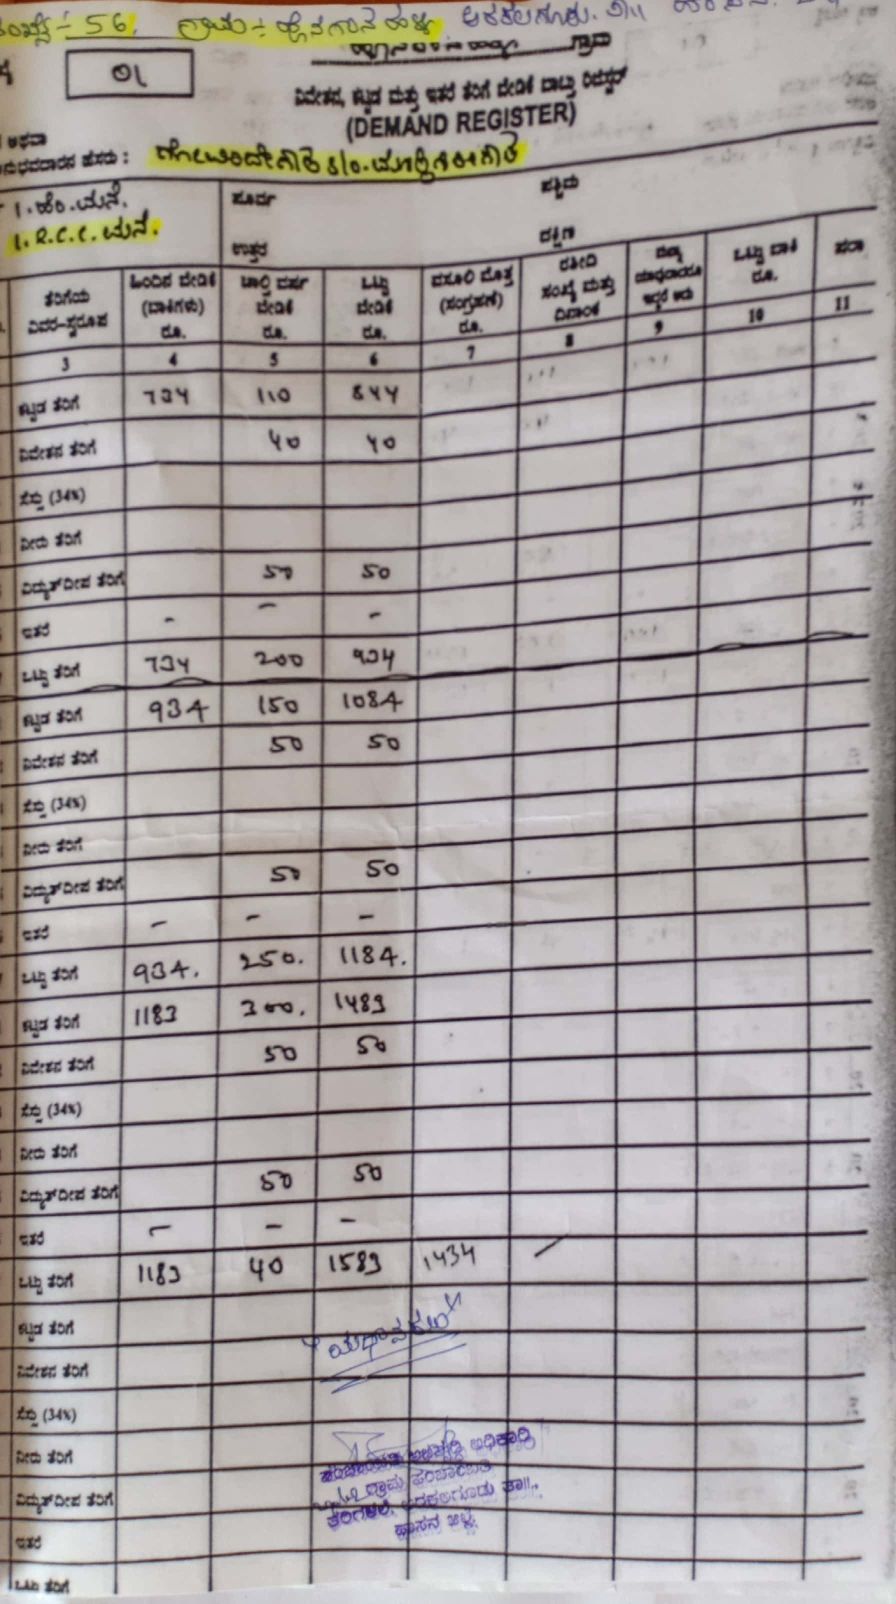 56.
01
ಗ್ರಾಮ
ನಿವೇಶನ, ಕಟ್ಟಡ ಮತ್ತು ಇತರೆ ತೆರಿಗೆ ಬೇಡಿಕೆ ಬಾಬ್ತು ರಿಜಿಸ್ಟರ್
(DEMAND REGISTER)
ಅಥವಾ
ಹೆಸರು :
1. ಹೆಂ. ಮನೆ.
1. R.C.C. ಮನೆ.
ಪೂರ್ವ ಪಶ್ಚಿಮ
ಉತ್ತರ ದಕ್ಷಿಣ
ತೆರಿಗೆಯ ವಿವರ-ಸ್ವರೂಪ
ಹಿಂದಿನ ಬೇಡಿಕೆ (ಬಾಕಿಗಳು) ರೂ.
ಚಾಲ್ತಿ ವರ್ಷ ಬೇಡಿಕೆ ರೂ.
ಒಟ್ಟು ಬೇಡಿಕೆ ರೂ.
ವಸೂಲಿ ಮೊತ್ತ (ಸಂಗ್ರಹಣೆ) ರೂ.
ರಶೀದಿ ಸಂಖ್ಯೆ ಮತ್ತು ದಿನಾಂಕ
ಒಟ್ಟು ಬಾಕಿ ರೂ.
ಷರಾ
3 4 5 6 7 8 9 10 11
ಕಟ್ಟಡ ತೆರಿಗೆ 734 110 844
ನಿವೇಶನ ತೆರಿಗೆ 40 40
ಸೆಸ್ಸು (34%)
ನೀರು ತೆರಿಗೆ
ವಿದ್ಯುತ್‌ದೀಪ ತೆರಿಗೆ 50 50
ಇತರೆ - - -
ಒಟ್ಟು ತೆರಿಗೆ 734 200 934
ಕಟ್ಟಡ ತೆರಿಗೆ 934 150 1084
ನಿವೇಶನ ತೆರಿಗೆ 50 50
ಸೆಸ್ಸು (34%)
ನೀರು ತೆರಿಗೆ
ವಿದ್ಯುತ್‌ದೀಪ ತೆರಿಗೆ 50 50
ಇತರೆ - - -
ಒಟ್ಟು ತೆರಿಗೆ 934. 250. 1184.
ಕಟ್ಟಡ ತೆರಿಗೆ 1183 300. 1483
ನಿವೇಶನ ತೆರಿಗೆ 50 50
ಸೆಸ್ಸು (34%)
ನೀರು ತೆರಿಗೆ
ವಿದ್ಯುತ್‌ದೀಪ ತೆರಿಗೆ 50 50
ಇತರೆ - - -
ಒಟ್ಟು ತೆರಿಗೆ 1183 40 1583 1434
ಕಟ್ಟಡ ತೆರಿಗೆ
"ಯಥಾನಕಲು"
ನಿವೇಶನ ತೆರಿಗೆ
ಸೆಸ್ಸು (34%)
ನೀರು ತೆರಿಗೆ
ಪಂಚಾಯತಿ ಅಭಿವೃದ್ಧಿ ಅಧಿಕಾರಿ
ಗ್ರಾಮ ಪಂಚಾಯತಿ
ವಿದ್ಯುತ್‌ದೀಪ ತೆರಿಗೆ
ಅರಕಲಗೂಡು ತಾ||,
ಹಾಸನ ಜಿಲ್ಲೆ.
ಇತರೆ
ಒಟ್ಟು ತೆರಿಗೆ